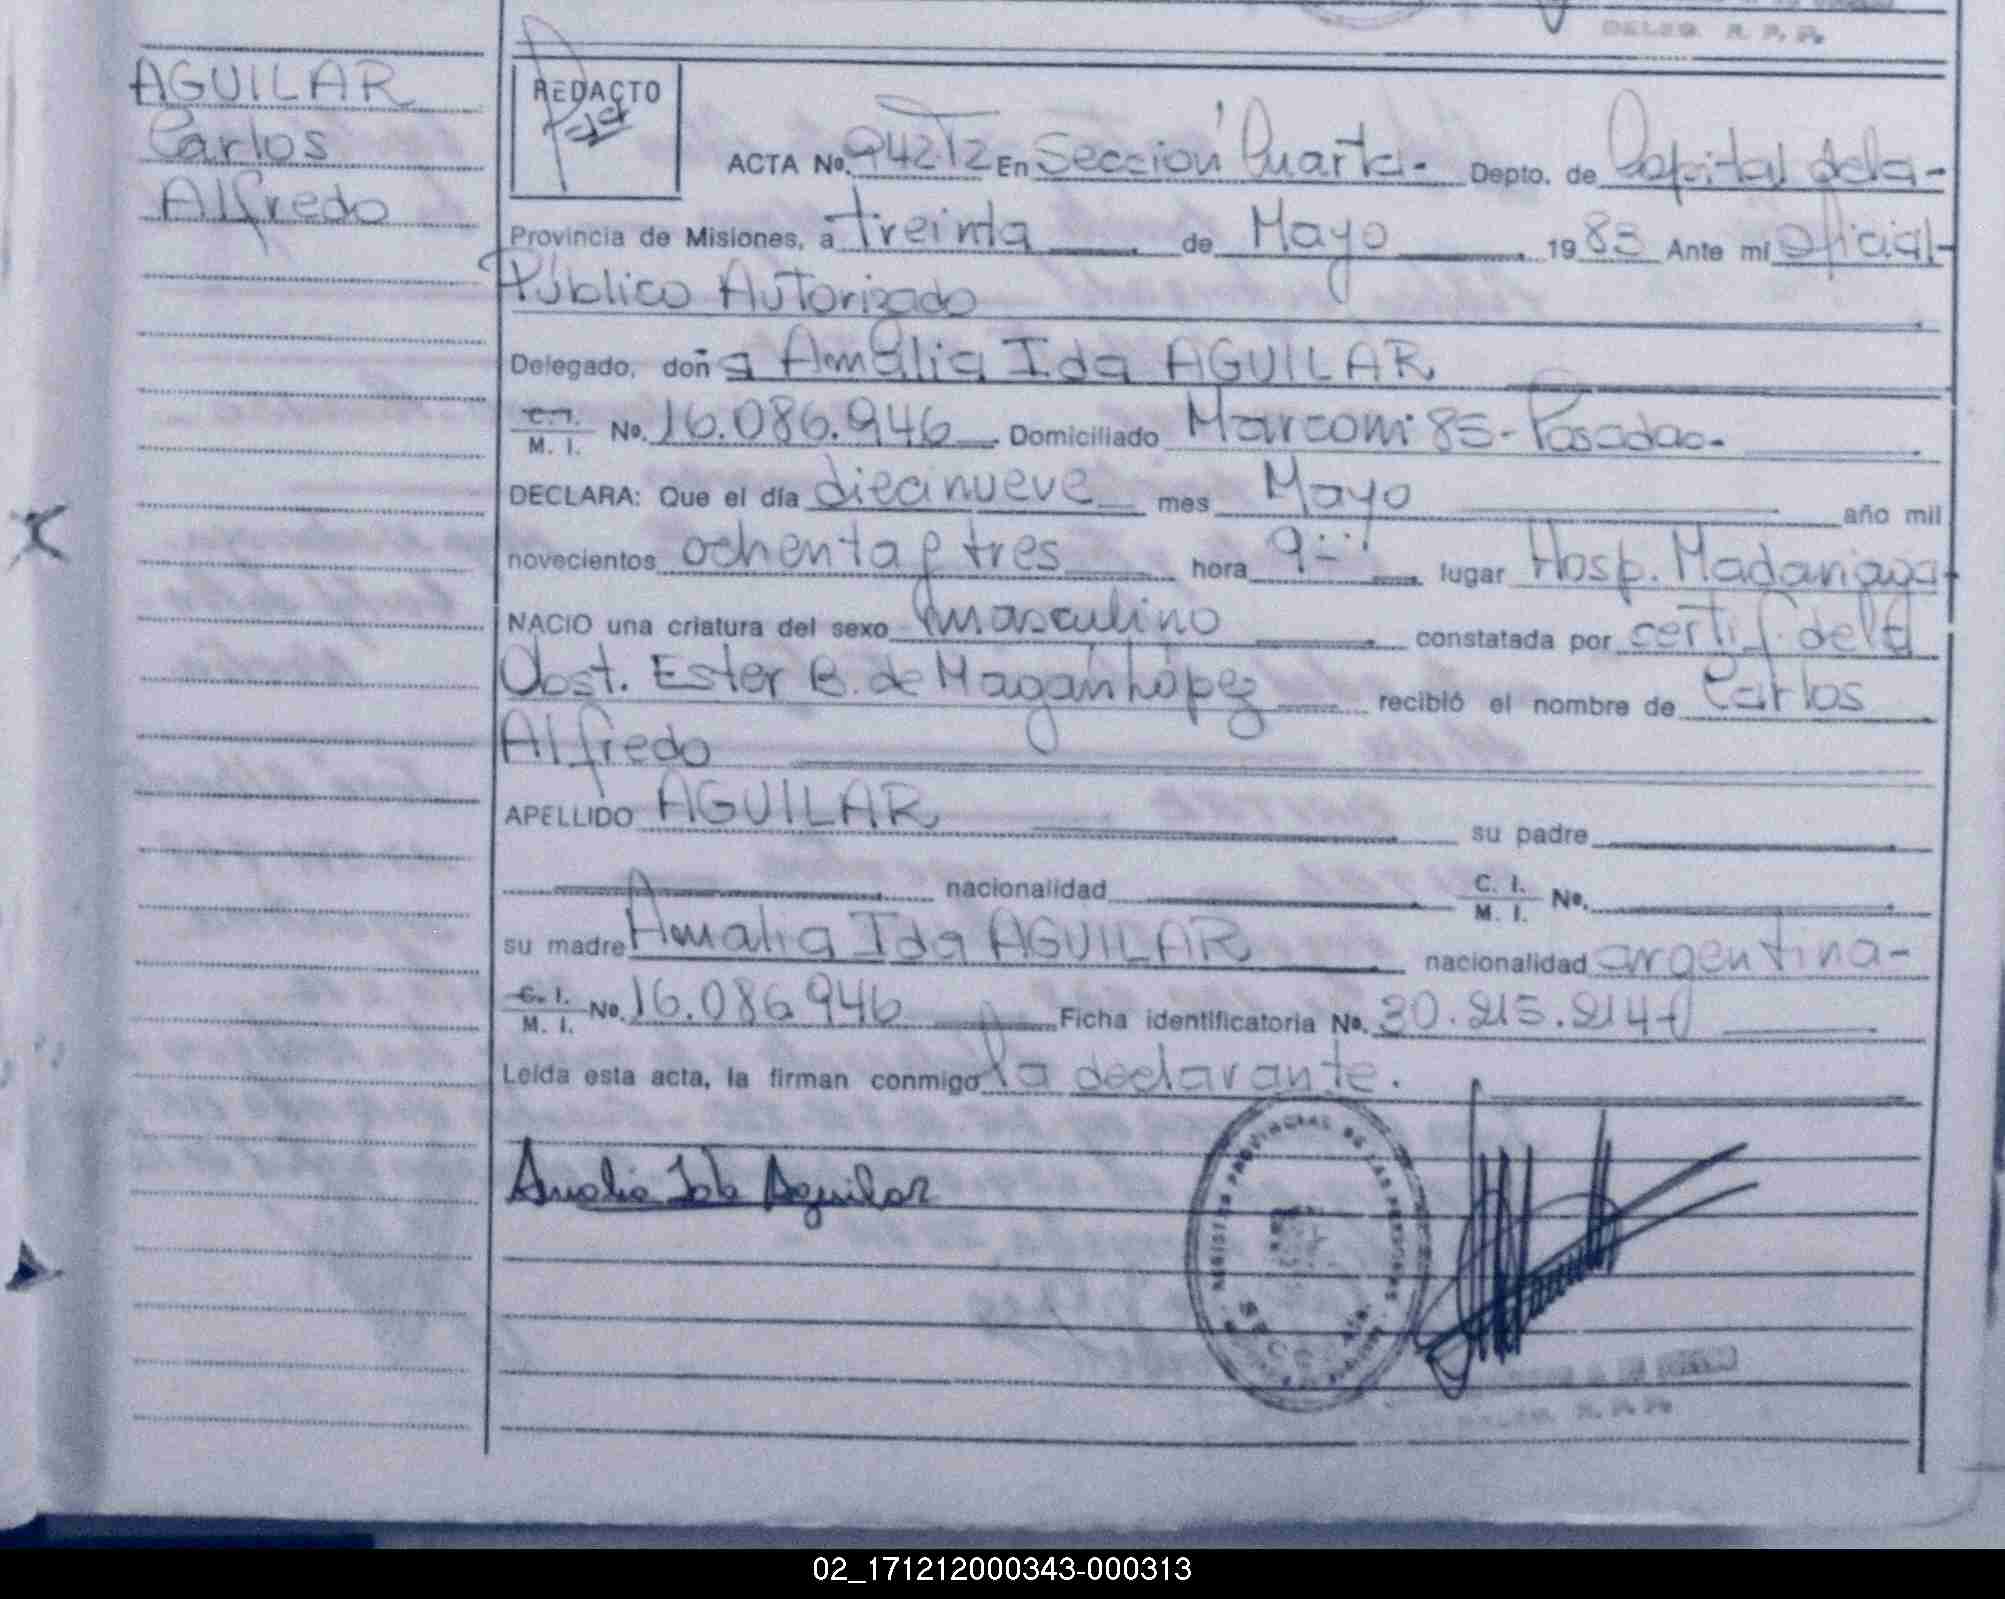 DELEG. R. P. P.
AGUILAR
Carlos
Alfredo
REDACTO
ACTA No. 942T2 En Sección Cuarta- Depto. de Capital dela-
Provincia de Misiones, a treinta de Mayo 1983 Ante mi Oficial-
Público Autorizado
Delegado, doña Amalia Ida AGUILAR
C.I. M. I. No. 16.086.946 Domiciliado Marconi 85-Posadas-
DECLARA: Que el día diecinueve mes Mayo año mil
novecientos ochenta y tres hora 9 lugar Hosp. Madariaga-
NACIO una criatura del sexo masculino constatada por certif. de la
Obst. Ester B. de Magán López recibió el nombre de Carlos
Alfredo
APELLIDO AGUILAR su padre
nacionalidad C. I. M. I. No.
su madre Amalia Ida AGUILAR nacionalidad argentina-
C. I. M. I. No. 16.086.946 Ficha identificatoria No. 30.215.214
Leída esta acta, la firman conmigo la declarante.
Amalia Ida Aguilar
REGISTRO PROVINCIAL DE LAS PERSONAS
DELEG. R. P. P.
02_171212000343-000313